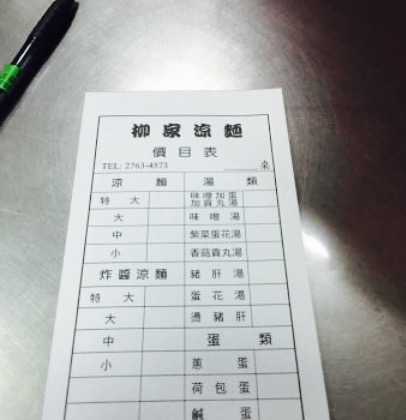 柳家涼麵
價目表
TEL: 2763-4573 ____桌
涼麵 湯類
特大 味噌加蛋加貢丸湯
大 味噌湯
中 紫菜蛋花湯
小 香菇貢丸湯
炸醬涼麵 豬肝湯
特大 蛋花湯
大 燙豬肝
中 蛋類
小 蔥蛋
荷包蛋
鹹蛋